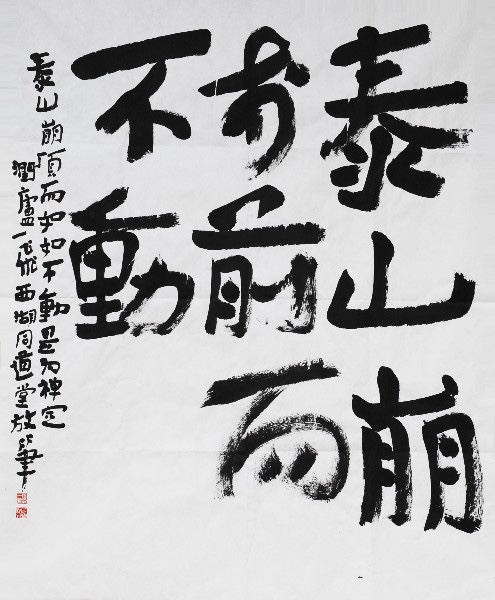 泰山崩
於前而
不動
泰山崩頂而如如不動是为禅定
潤廬一飛西湖同道堂放筆